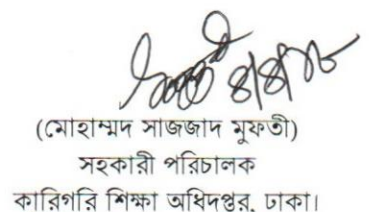 ৪/৪/১৮
(মোহাম্মদ সাজজাদ মুফতী)
সহকারী পরিচালক
কারিগরি শিক্ষা অধিদপ্তর, ঢাকা।